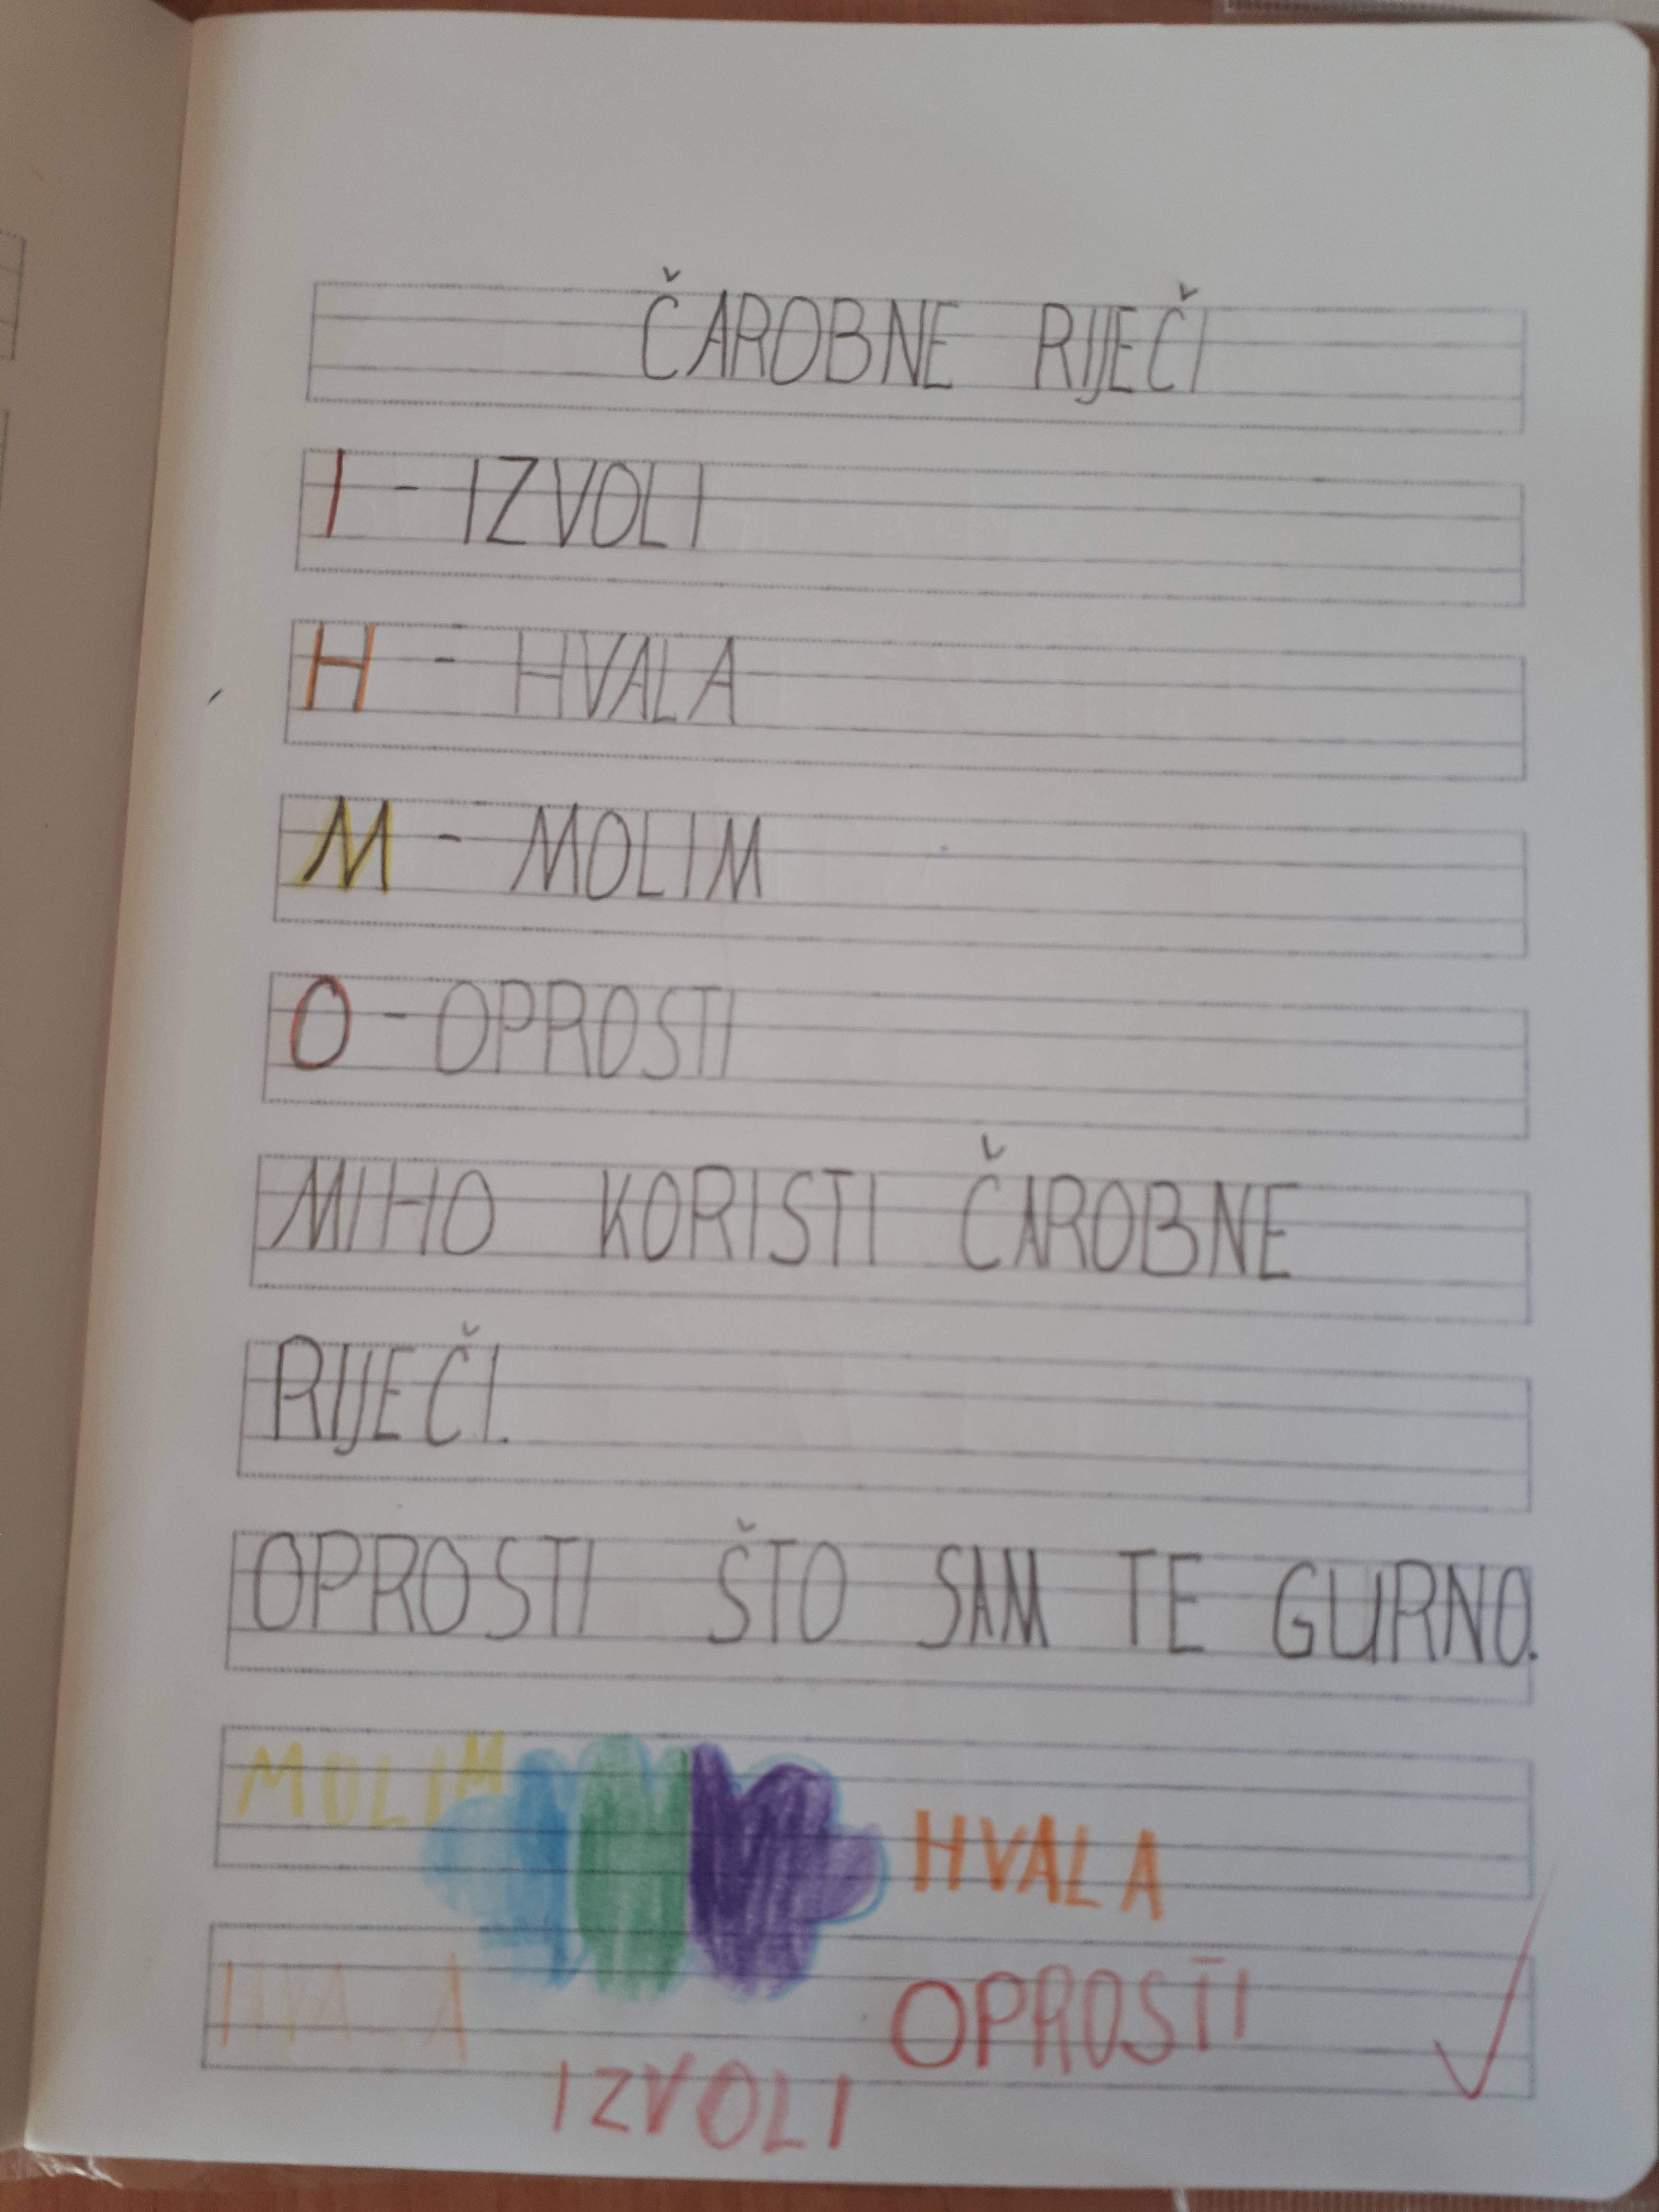 ČAROBNE RIJEČI
I - IZVOLI
H - HVALA
M - MOLIM
O - OPROSTI
MIHO KORISTI ČAROBNE
RIJEČI.
OPROSTI ŠTO SAM TE GURNO.
MOLIM
HVALA
HVALA
OPROSTI
IZVOLI